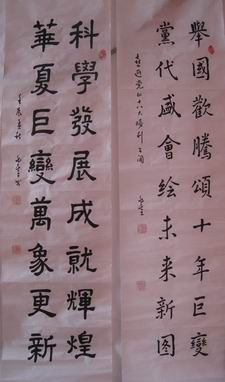 舉國歡騰頌十年巨變
黨代盛會绘未来新图
喜迎党的十八大
科學發展成就輝煌
華夏巨變萬象更新